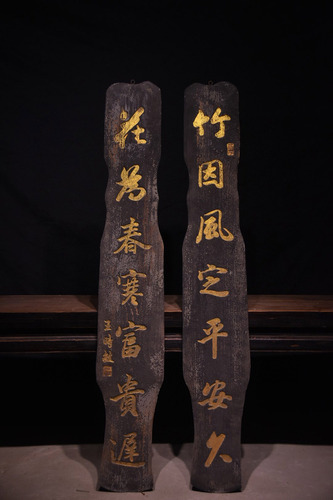 竹因風定平安久
花為春寒富貴遲
王時敏